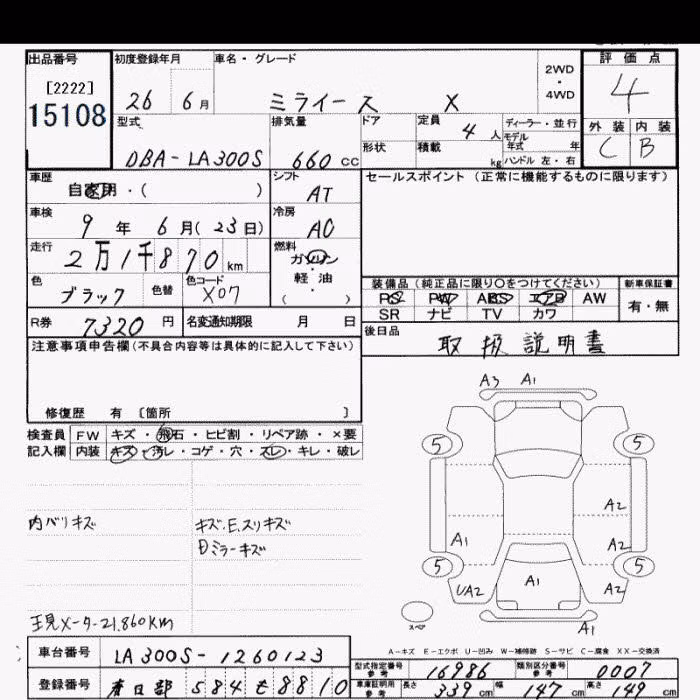 出品番号 初度登録年月 車名・グレード 2WD・4WD 評価点
[2222]
15108
26 6月 ミライース X 4
型式 排気量 ドア 定員 4人 ディーラー・並行
モデル年式 年
外装 内装
DBA-LA300S 660cc 形状 積載 kg ハンドル 左・右 C B
車歴 シフト セールスポイント(正常に機能するものに限ります)
自家用・( ) AT
車検 冷房
9年 6月(23日) AC
走行 燃料
2万1千870km ガソリン
軽油
( )
色 色替 色コード
ブラック X07
装備品(純正品に限り○をつけてください) 新車保証書
PS PW ABS エアB AW 有・無
SR ナビ TV カワ
R券 7320円 名変通知期限 月 日
後日品 取扱説明書
注意事項申告欄(不具合内容等は具体的に記入して下さい)
修復歴 有〔箇所 〕
検査員記入欄
FW キズ・飛石・ヒビ割・リペア跡・×要
内装 キズ・汚レ・コゲ・穴・スレ・キレ・破レ
内バリキズ
キズ、E、スリキズ
Dミラーキズ
現メーター21.860km
A3 A1
5 5
A2
A1 A2
5 5
UA2 A1 A2
スペア A1
A-キズ E-エクボ U-凹み W-補修跡 S-サビ C-腐食 XX-交換済
車台番号 LA300S-1260123
登録番号 春日部 584 も 8810
型式指定番号 参考 16986 類別区分番号 参考 0007
車庫証明用 参考 長さ 339cm 幅 147cm 高さ 149cm